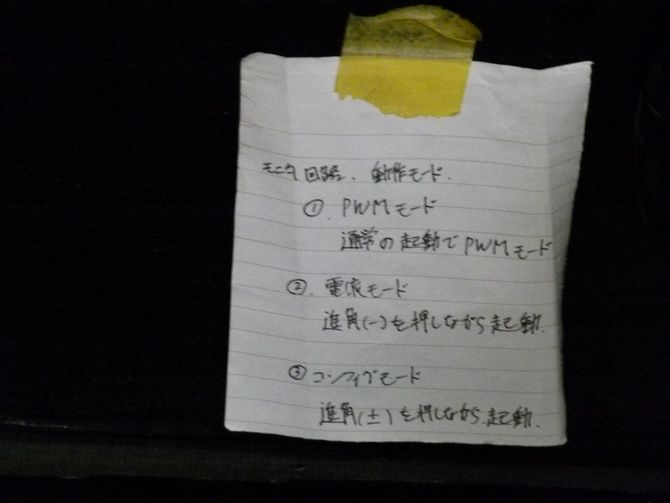 モニタ回路、動作モード.
①. PWMモード
通常の起動でPWMモード
②.電流モード
進角(-)を押しながら起動.
③コンフィグモード
進角(±)を押しながら起動.